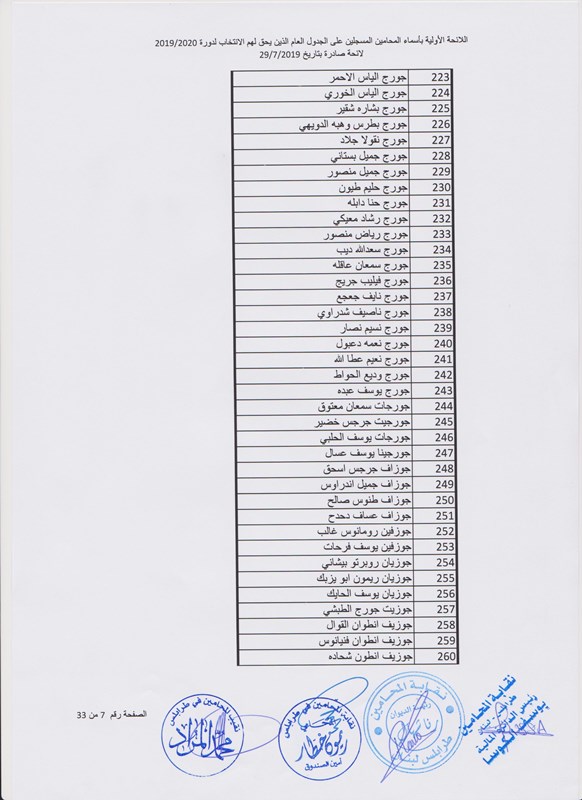 اللائحة الأولية بأسماء المحامين المسجلين على الجدول العام الذين يحق لهم الانتخاب لدورة 2019/2020
لائحة صادرة بتاريخ 29/7/2019
223 جورج الياس الاحمر
224 جورج الياس الخوري
225 جورج بشاره شقير
226 جورج بطرس وهبه الدويهي
227 جورج نقولا جلاد
228 جورج جميل بستاني
229 جورج جميل منصور
230 جورج حليم طيون
231 جورج حنا دابله
232 جورج رشاد معيكي
233 جورج رياض منصور
234 جورج سعدالله ديب
235 جورج سمعان عاقله
236 جورج فيليب جريج
237 جورج نايف جعجع
238 جورج ناصيف شدراوي
239 جورج نسيم نصار
240 جورج نعمه دعبول
241 جورج نعيم عطا الله
242 جورج وديع الحواط
243 جورج يوسف عبده
244 جورجات سمعان معتوق
245 جورجيت جرجس خضير
246 جورجات يوسف الحلبي
247 جورجينا يوسف عسال
248 جوزاف جرجس اسحق
249 جوزاف جميل اندراوس
250 جوزاف طنوس صالح
251 جوزاف عساف دحدح
252 جوزفين رومانوس غالب
253 جوزفين يوسف فرحات
254 جوزيان روبرتو بيشاني
255 جوزيان ريمون ابو يزبك
256 جوزيان يوسف الحايك
257 جوزيت جورج الطبشي
258 جوزيف انطوان القوال
259 جوزيف انطوان فنيانوس
260 جوزيف انطون شحاده
نقابة المحامين
رئيسة الديوان
طرابلس لبنان
نقابة المحامين في طرابلس
المحامي
ريمون خطار
أمين الصندوق
نقيب المحامين في طرابلس
محمد المراد
نقابة المحامين
الصفحة رقم 7 من 33